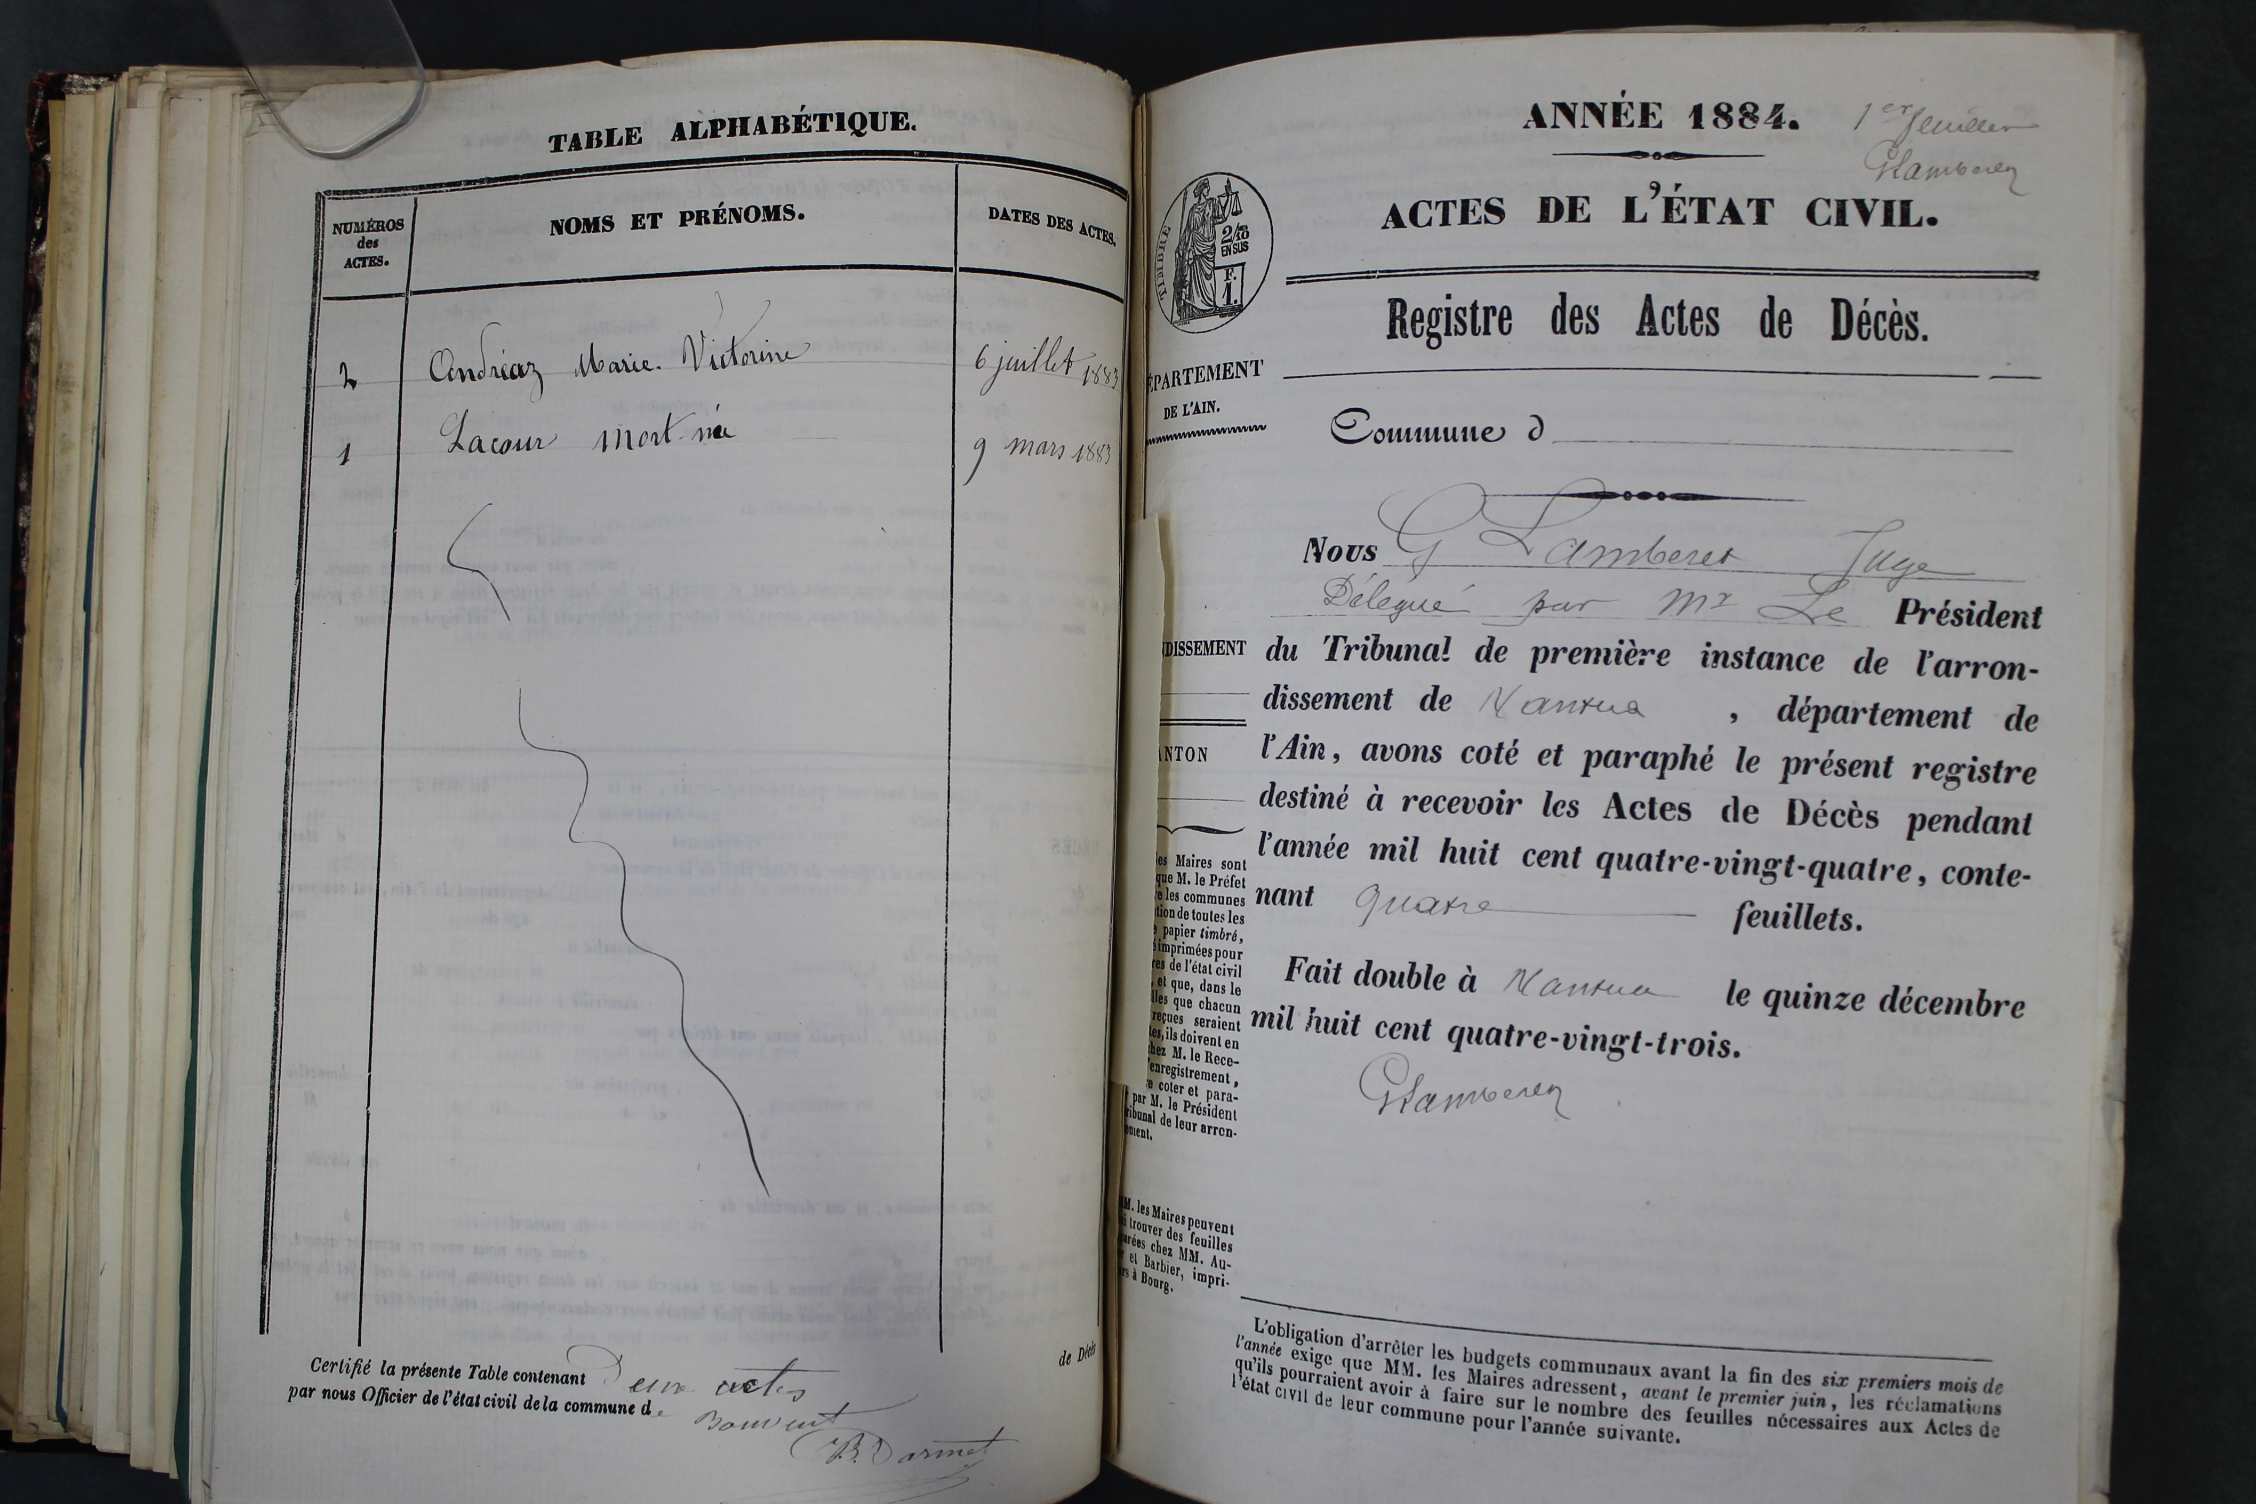 TABLE ALPHABÉTIQUE.
NUMÉROS
des
ACTES.
NOMS ET PRÉNOMS.
DATES DES ACTES.
2 Andréaz Marie Victorine 6 juillet 1883
1 Lacour mort-née 9 mars 1883
Certifié la présente Table contenant Deux actes de Décès
par nous Officier de l'état civil de la commune de Bouvent
B. Darmet
ANNÉE 1884.
1er feuillet
GLamberet
ACTES DE L'ÉTAT CIVIL.
TIMBRE
2/10
EN SUS
F.
1.
Registre des Actes de Décès.
ÉPARTEMENT
DE L'AIN.
Commune d
Nous G Lamberet Juge
Délégué par Mr Le Président
du Tribunal de première instance de l'arron-
dissement de Nantua, département de
l'Ain, avons coté et paraphé le présent registre
destiné à recevoir les Actes de Décès pendant
l'année mil huit cent quatre-vingt-quatre, conte-
nant quatre feuillets.
Fait double à Nantua le quinze décembre
mil huit cent quatre-vingt-trois.
GLamberet
NDISSEMENT
ANTON
es Maires sont
que M. le Préfet
e les communes
tion de toutes les
e papier timbré,
imprimées pour
res de l'état civil
, et que, dans le
lles que chacun
reçues seraient
es, ils doivent en
hez M. le Rece-
enregistrement,
e coter et para-
par M. le Président
ribunal de leur arron-
ement.
M. les Maires peuvent
i trouver des feuilles
arées chez MM. Au-
et Barbier, impri-
rs à Bourg.
L'obligation d'arrêter les budgets communaux avant la fin des six premiers mois de
l'année exige que MM. les Maires adressent, avant le premier juin, les réclamations
qu'ils pourraient avoir à faire sur le nombre des feuilles nécessaires aux Actes de
l'état civil de leur commune pour l'année suivante.